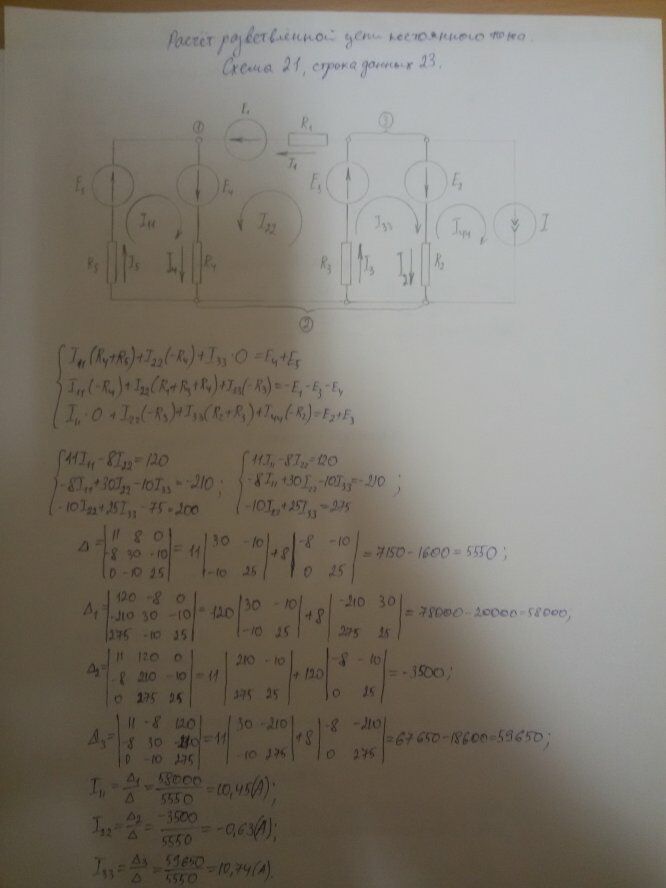 Расчёт разветвлённой цепи постоянного тока.
Схема 21, строка данных 23.
E₁ R₁ ① ③
I₁
E₅ E₄ E₃ E₂ I
I₁₁ I₂₂ I₃₃ I₄₄
R₅ I₅ I₄ R₄ R₃ I₃ I₂ R₂
②
I₁₁(R₄+R₅)+I₂₂(-R₄)+I₃₃·0=E₄+E₅
I₁₁(-R₄)+I₂₂(R₁+R₃+R₄)+I₃₃(-R₃)=-E₁-E₃-E₄
I₁₁·0+I₂₂(-R₃)+I₃₃(R₂+R₃)+I₄₄(-R₂)=E₂+E₃
11I₁₁-8I₂₂=120 11I₁₁-8I₂₂=120
-8I₁₁+30I₂₂-10I₃₃=-210; -8I₁₁+30I₂₂-10I₃₃=-210;
-10I₂₂+25I₃₃-75=200 -10I₂₂+25I₃₃=275
Δ=|11 8 0; -8 30 -10; 0 -10 25|=11|30 -10; -10 25|+8|-8 -10; 0 25|=7150-1600=5550;
Δ₁=|120 -8 0; -210 30 -10; 275 -10 25|=120|30 -10; -10 25|+8|-210 30; 275 25|=78000-20000=58000;
Δ₂=|11 120 0; -8 210 -10; 0 275 25|=11|210 -10; 275 25|+120|-8 -10; 0 25|=-3500;
Δ₃=|11 -8 120; -8 30 -210; 0 -10 275|=11|30 -210; -10 275|+8|-8 -210; 0 275|=67650-18600=59650;
I₁₁=Δ₁/Δ=58000/5550=10,45(A);
I₂₂=Δ₂/Δ=-3500/5550=-0,63(A);
I₃₃=Δ₃/Δ=59650/5550=10,74(A).